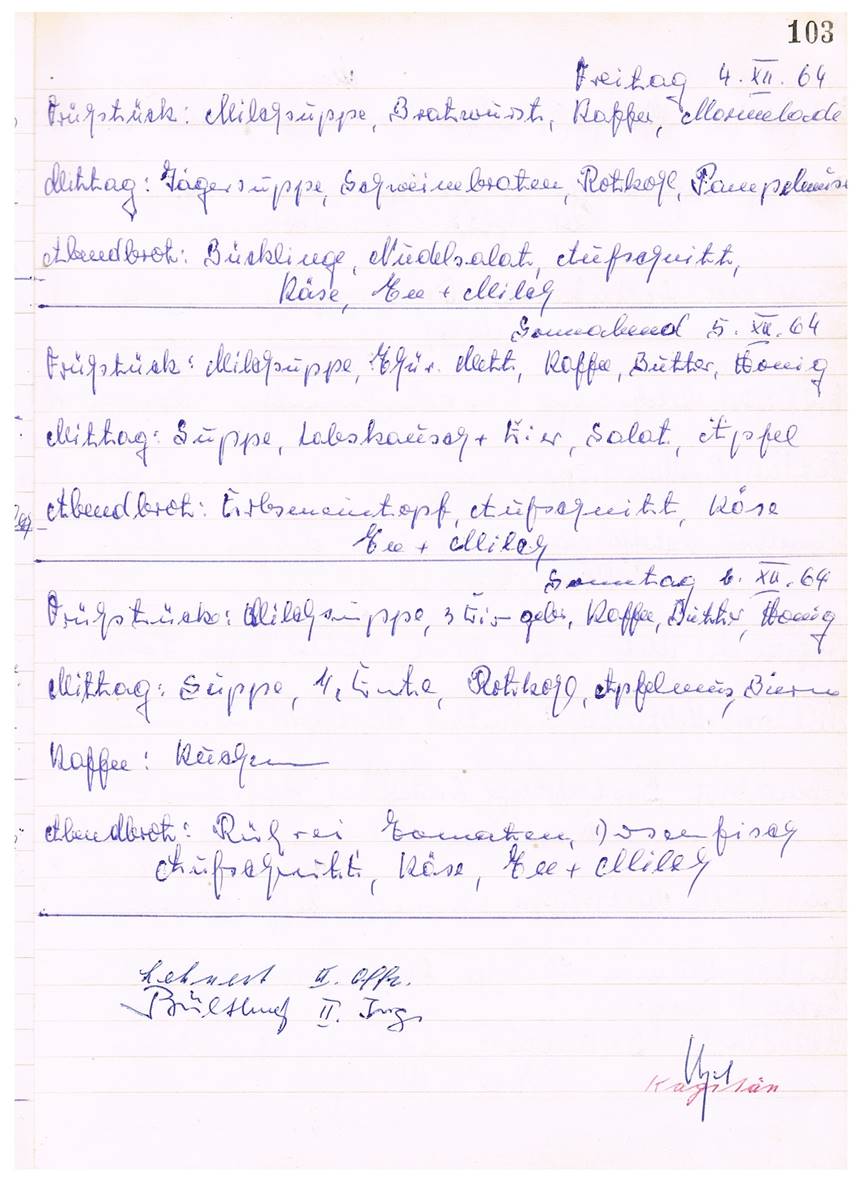 103
Freitag 4. XII. 64
Frühstück: Milchsuppe, Bratwurst, Kaffee, Marmelade
Mittag: Jägersuppe, Schweinebraten, Rotkohl, Pampelmuse
Abendbrot: Bücklinge, Nudelsalat, Aufschnitt,
Käse, Tee + Milch
Sonnabend 5. XII. 64
Frühstück: Milchsuppe, Mett, Kaffee, Butter, Honig
Mittag: Suppe, Labskausch + Eier, Salat, Apfel
Abendbrot: Erbseneintopf, Aufschnitt, Käse
Tee + Milch
Sonntag 6. XII. 64
Frühstück: Milchsuppe, 3 Eier gebr, Kaffee, Butter, Honig
Mittag: Suppe, Ente, Rotkohl, Apfelmus, Birne
Kaffee: Kuchen
Abendbrot: Rührei Tomaten, Dosenfisch
Aufschnitt, Käse, Tee + Milch
Lehnert II. Offz.
II. Ing.
Kapitän